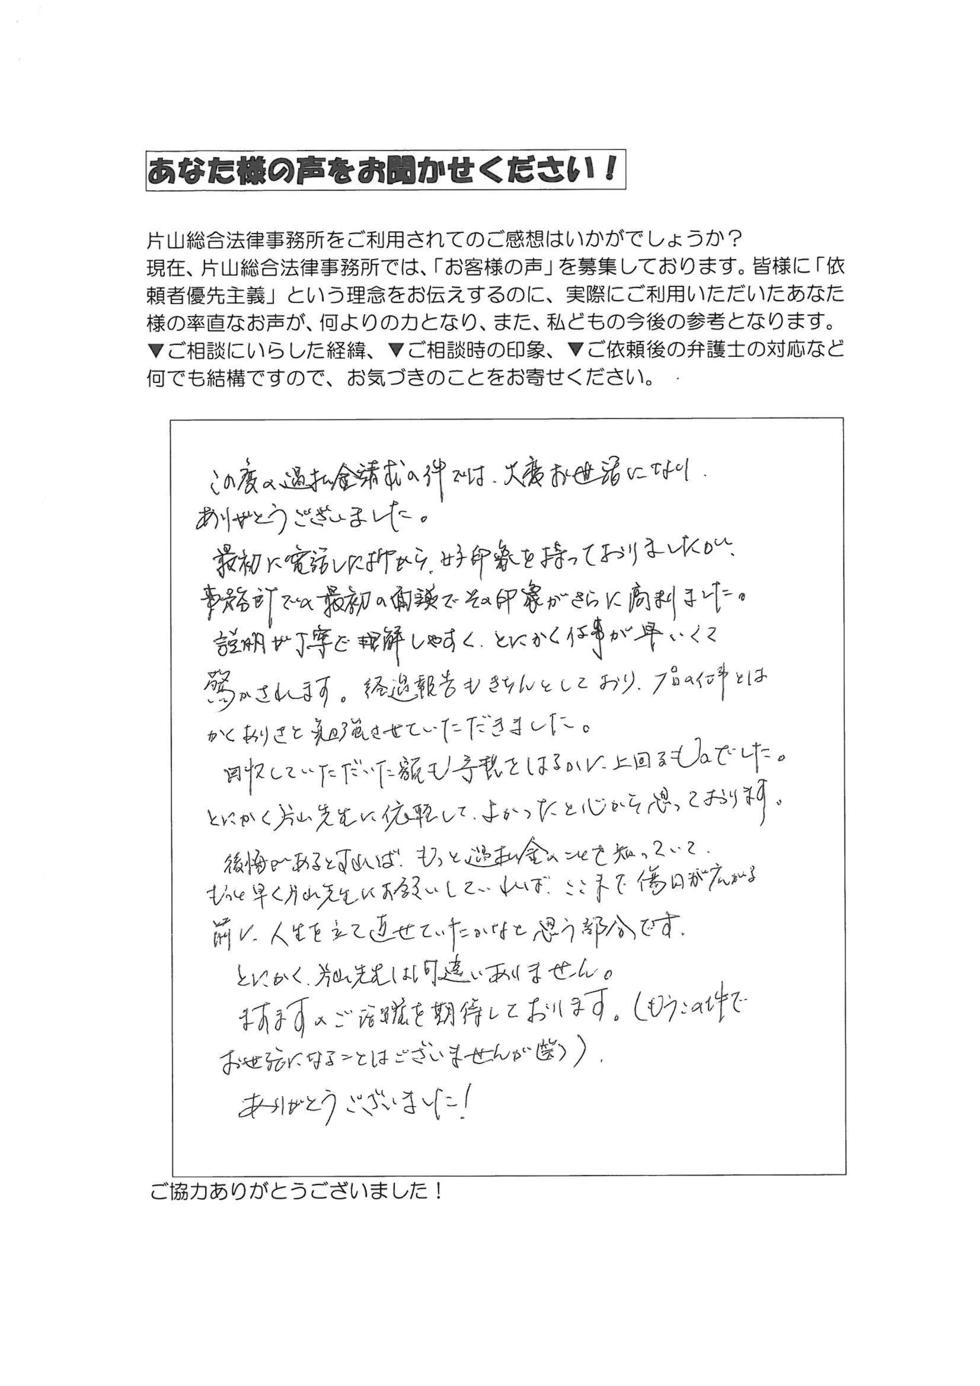 あなた様の声をお聞かせください！
片山総合法律事務所をご利用されてのご感想はいかがでしょうか？
現在、片山総合法律事務所では、「お客様の声」を募集しております。皆様に「依
頼者優先主義」という理念をお伝えするのに、実際にご利用いただいたあなた
様の率直なお声が、何よりの力となり、また、私どもの今後の参考となります。
▼ご相談にいらした経緯、▼ご相談時の印象、▼ご依頼後の弁護士の対応など
何でも結構ですので、お気づきのことをお寄せください。
この度の過払金請求の件では、大変お世話になり、
ありがとうございました。
最初に電話した時から、好印象を持っておりましたが、
事務所での最初の面談でその印象がさらに高まりました。
説明が丁寧で理解しやすく、とにかく仕事が早いくて
驚かされます。経過報告もきちんとしており、プロの仕事とは
かくありきと勉強させていただきました。
回収していただいた額も予想をはるかに上回るものでした。
とにかく片山先生に依頼して、よかったと心から思っております。
後悔があるとすれば、もっと過払金のことを知っていて、
もっと早く片山先生にお願いしていれば、ここまで傷口が広がる
前に、人生を立て直せていたかなと思う部分です。
とにかく、片山先生は間違いありません。
ますますのご活躍を期待しております。（もうこの件で
お世話になることはございませんが（笑））。
ありがとうございました！
ご協力ありがとうございました！